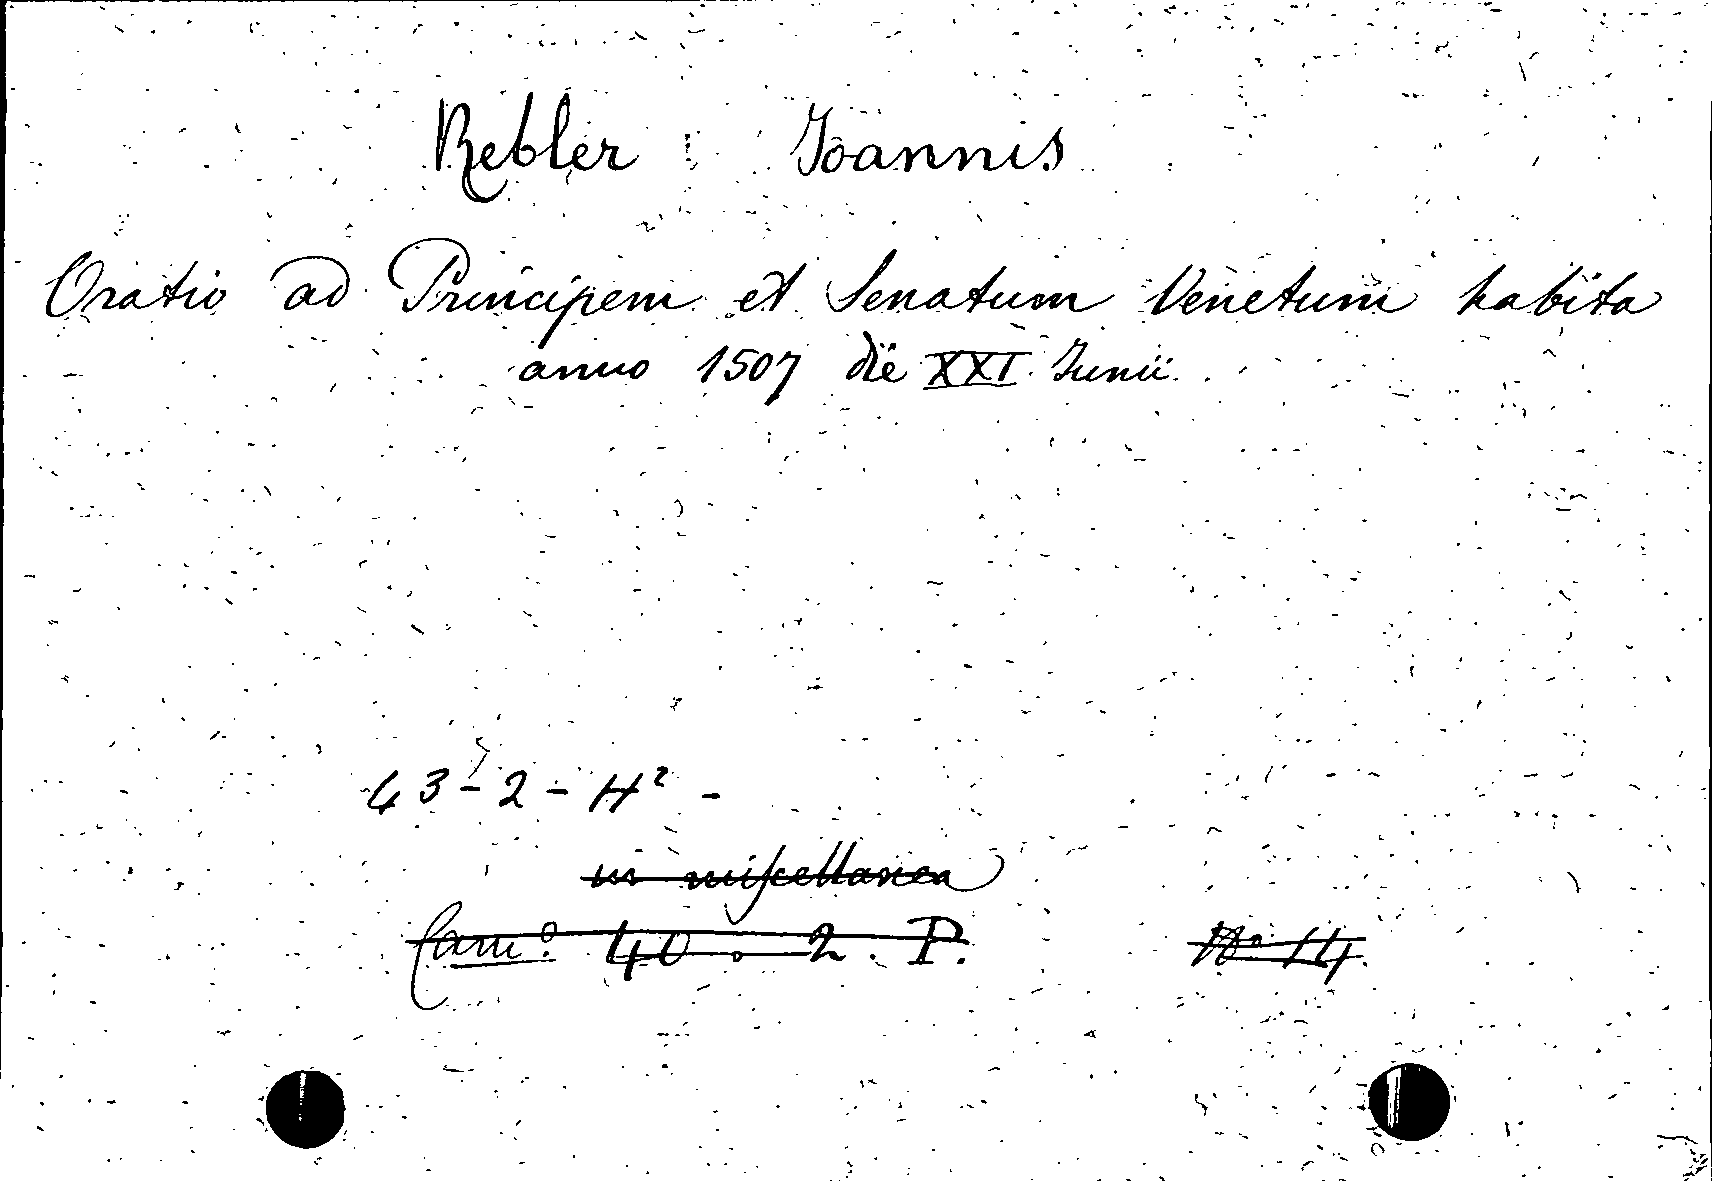 Rebler Joannis
Oratio ad Principem et Senatum Venetum habita
anno 1507 die XXI Junii.
43-2-H² -
in miscellanea
Cam.º 40. 2. P. Nº 14.